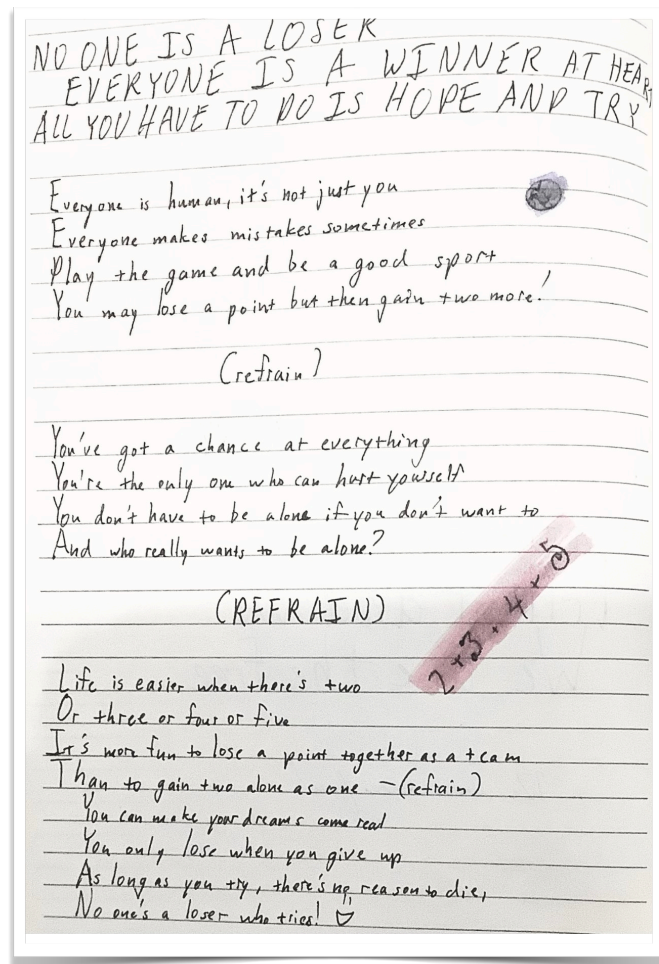 NO ONE IS A LOSER
EVERYONE IS A WINNER AT HEART
ALL YOU HAVE TO DO IS HOPE AND TRY
Everyone is human, it's not just you
Everyone makes mistakes sometimes
Play the game and be a good sport
You may lose a point but then gain two more!
(refrain)
You've got a chance at everything
You're the only one who can hurt yourself
You don't have to be alone if you don't want to
And who really wants to be alone?
2 + 3 + 4 + 5
(REFRAIN)
Life is easier when there's two
Or three or four or five
It's more fun to lose a point together as a team
Than to gain two alone as one -(refrain)
You can make your dreams come real
You only lose when you give up
As long as you try, there's no reason to die,
No one's a loser who tries!